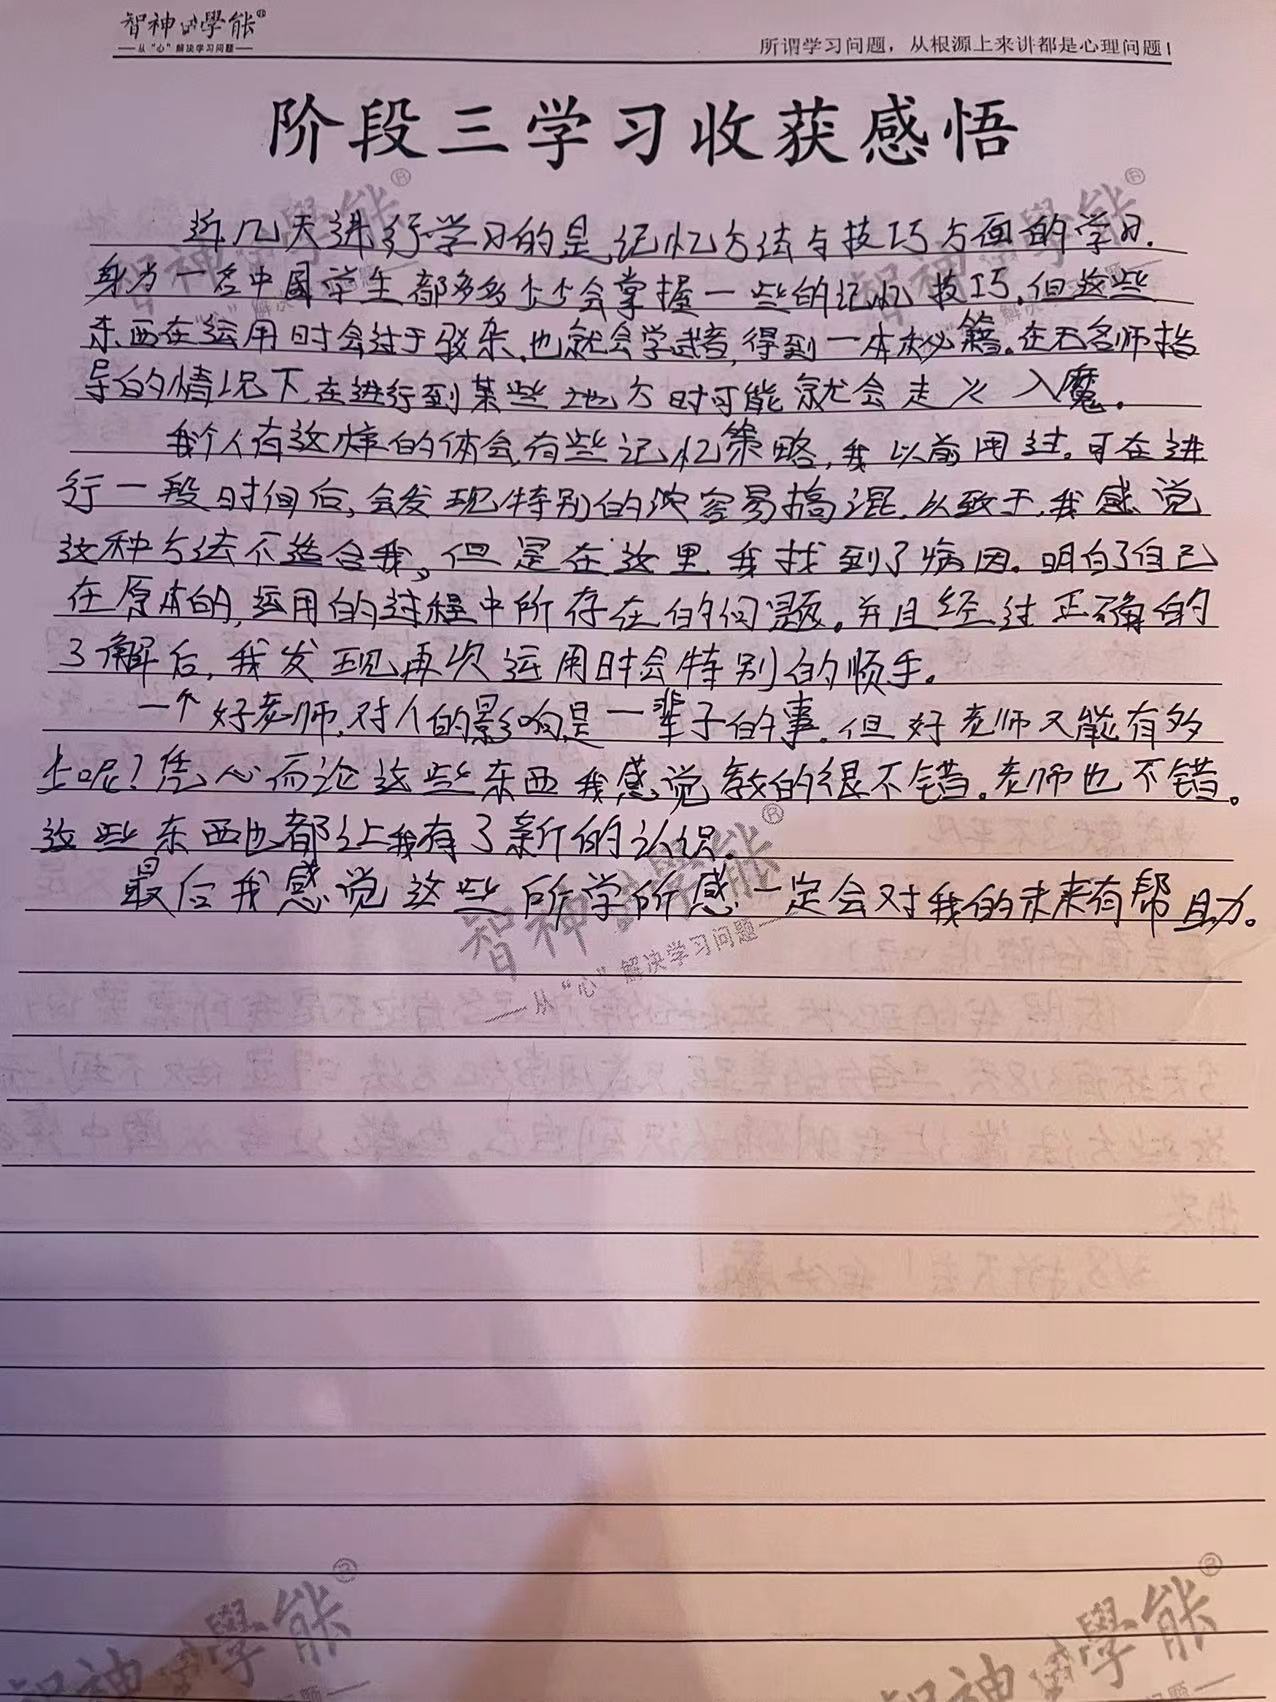 智神的學能®
—从“心”解决学习问题—
所谓学习问题，从根源上来讲都是心理问题!
阶段三学习收获感悟
近几天进行学习的是记忆方法与技巧方面的学习.
身为一名中国学生都多多少少会掌握一些的记忆技巧,但这些
东西在运用时会过于驳杂,也就会学武者,得到一本秘籍。在无名师指
导的情况下,在进行到某些地方时可能就会走火入魔。
我个人有这样的体会,有些记忆策略,我以前用过。可在进
行一段时间后,会发现特别的浓容易搞混,以致于,我感觉
这种方法不适合我。但是在这里,我找到了病因。明白了自己
在原本的,运用的过程中所存在的问题。并且经过正确的
了解后,我发现再次运用时会特别的顺手。
一个好老师,对人的影响是一辈子的事,但好老师又能有多
少呢?凭心而论这些东西我感觉教的很不错。老师也不错。
这些东西也都让我有了新的认识。
最后我感觉这些所学所感,一定会对我的未来有帮助。